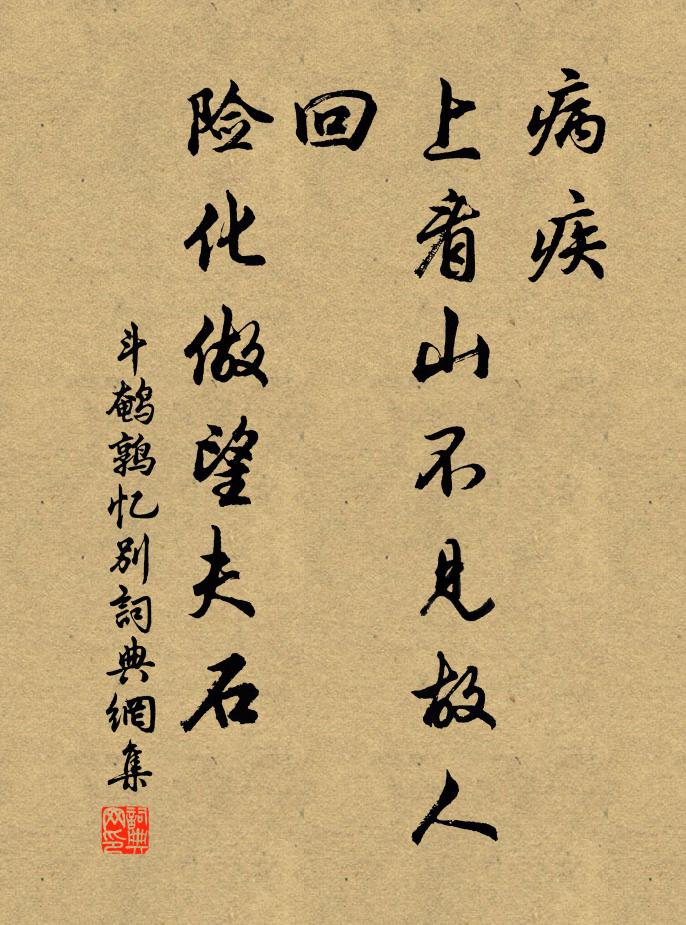 病疾
上看山不见故人
回
险化做望夫石
斗鹌鹑忆别詞典網集
詞典网印